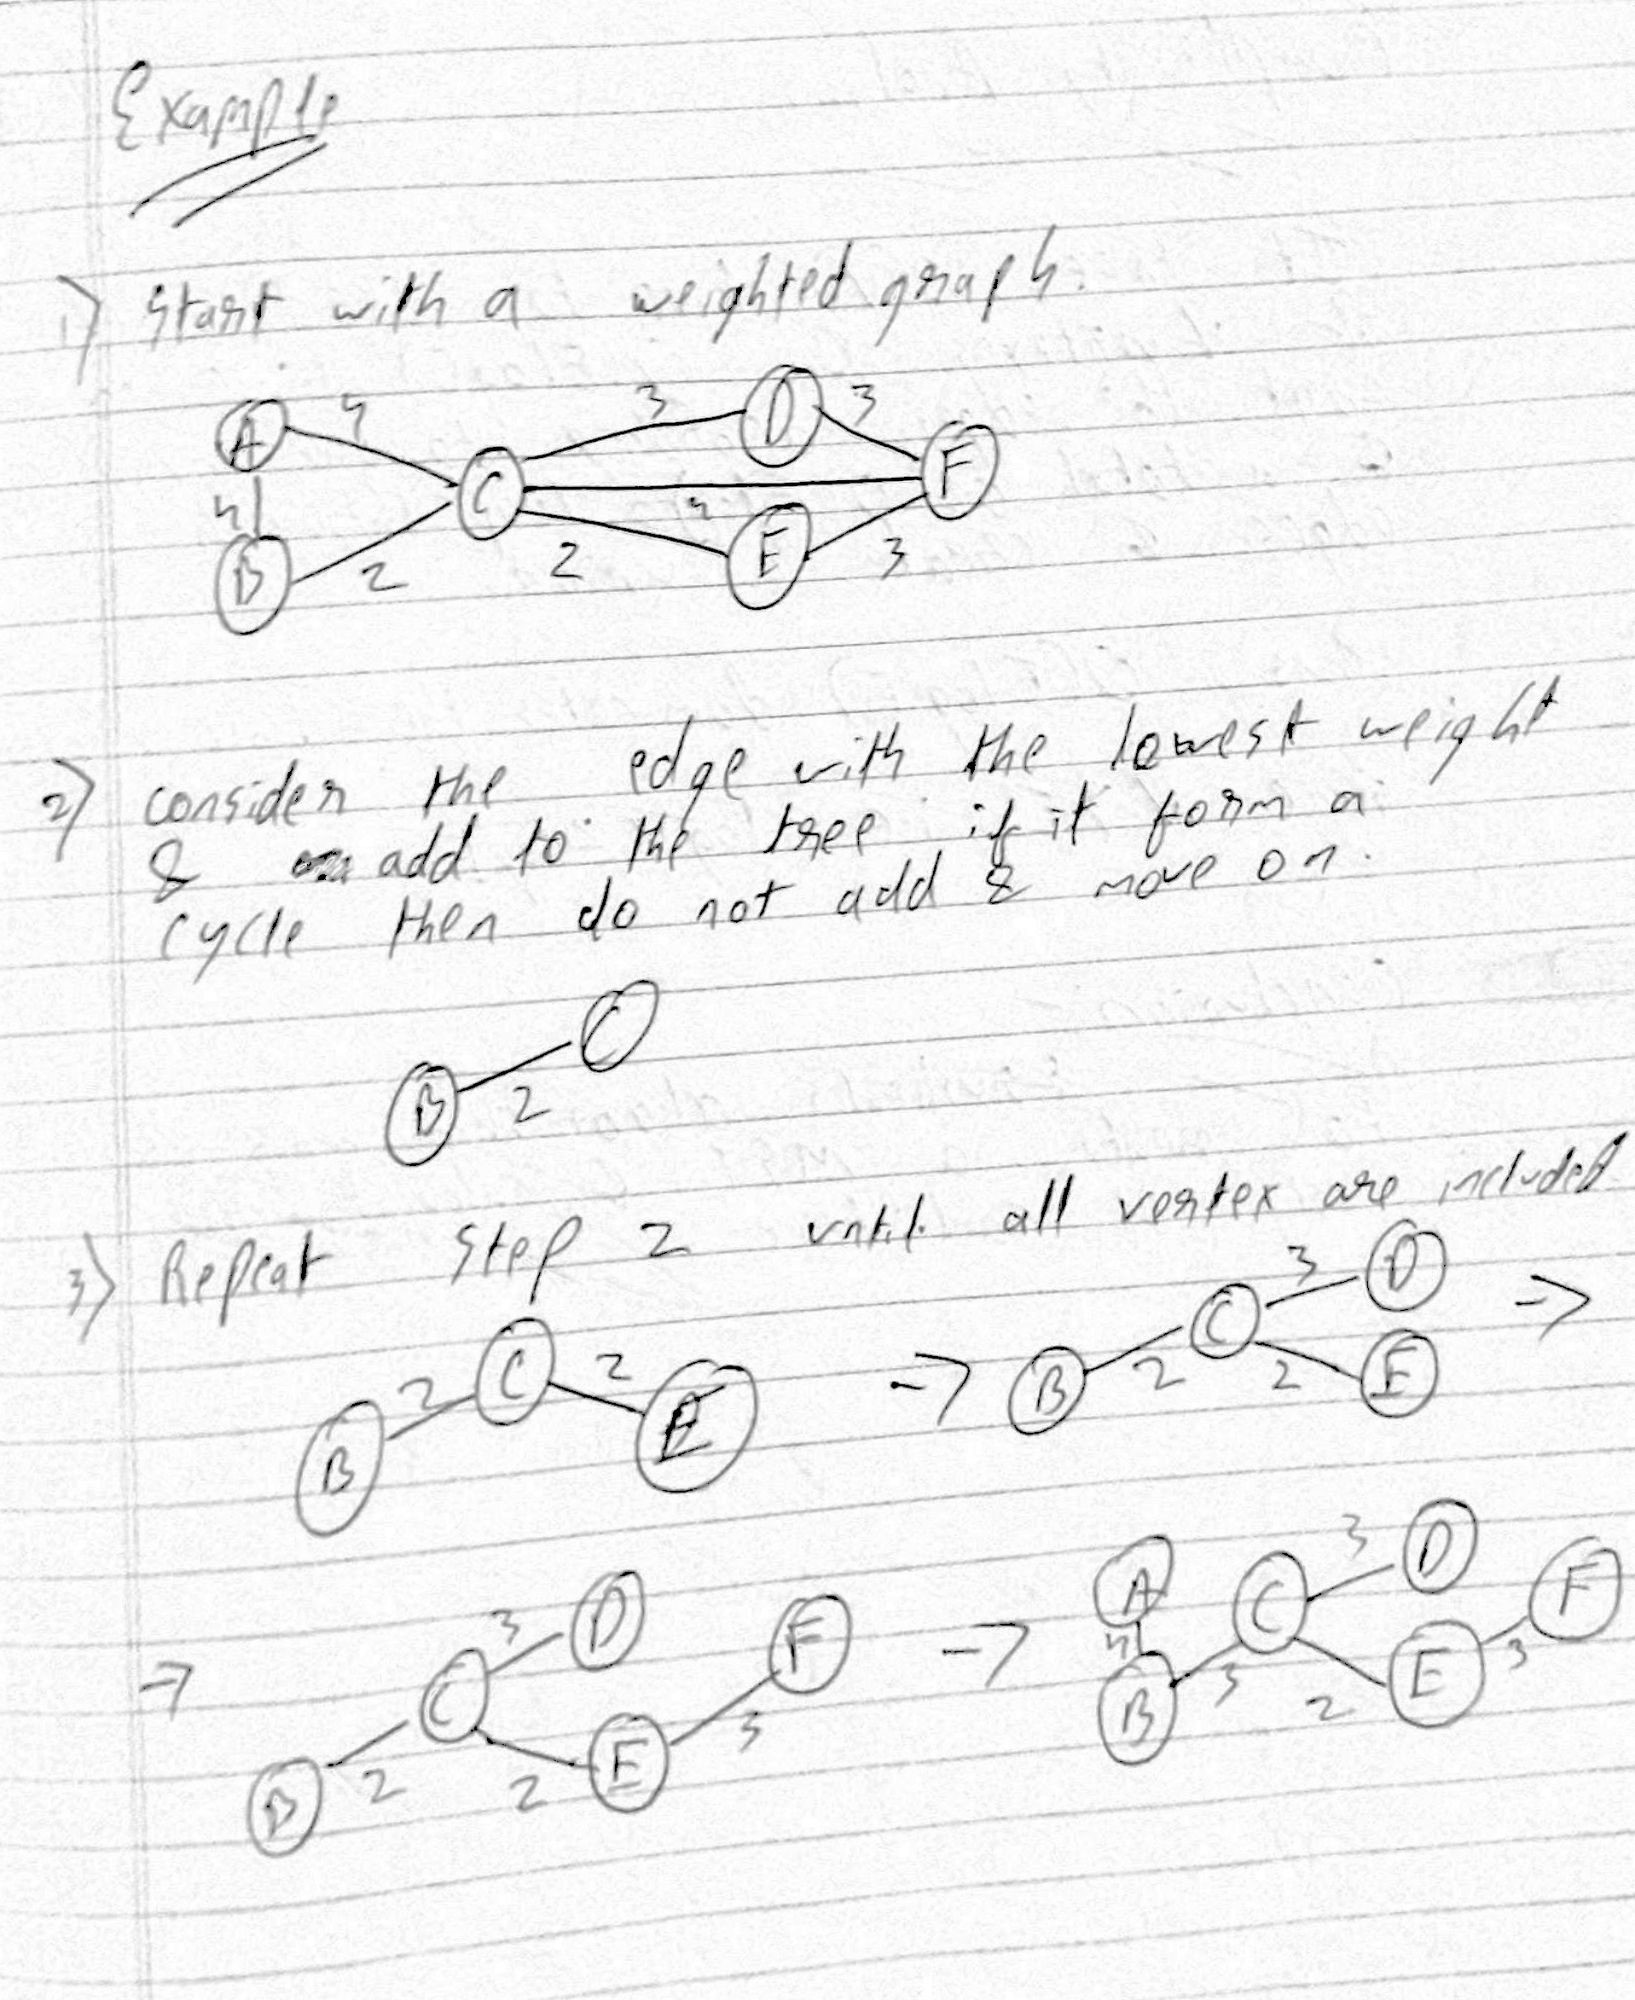 Example
1) Start with a weighted graph.
A 4 3 D 3
C F
4 4
B 2 2 E 3
2) consider the edge with the lowest weight
& add to the tree if it form a
cycle then do not add & move on.
C
B 2
3) Repeat step 2 until all vertex are included
C 2 -> C 3 D ->
2 E B 2 2 E
B
-> C 3 D F -> A C 3 D F
4
B 2 2 E 3 B 3 2 E 3